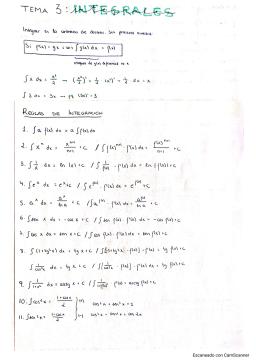 TEMA 3: INTEGRALES
Integrar es lo contrario de derivar. Son procesos inversos
Si F'(x) = g(x) con ∫ g(x) dx = F(x)
∫ x dx = x²/2 → (x²/2)' = 1/2 · (x²)' = 1/2 · 2x = x
∫ 3 dx = 3x → (3x)' = 3
REGLAS DE INTEGRACIÓN
1. ∫ a f(x) dx = a ∫ f(x) dx
2. ∫ xⁿ dx = xⁿ⁺¹/n+1 + C / ∫ f(x)ⁿ · f'(x) dx = f(x)ⁿ⁺¹/n+1 + C
3. ∫ 1/x dx = ln (x) + C / ∫ 1/f(x) · f'(x) dx = ln f(x) + C
4. ∫ eˣ dx = eˣ + C / ∫ e^f(x) · f'(x) dx = e^f(x) + C
5. ∫ aˣ dx = aˣ/ln a + C / ∫ a^f(x) · f'(x) dx = a^f(x)/ln a + C
6. ∫ sen x dx = - cos x + C / ∫ sen f(x) · f'(x) dx = - cos f(x) + C
7. ∫ cos x dx = sen x + C / ∫ cos f(x) · f'(x) dx = sen f(x) + C
8. ∫ (1+tg²x) dx = tg x + C / ∫ (1+tg² f(x)) · f'(x) = tg f(x) + C
∫ 1/cos²x dx = tg x + C / ∫ 1/cos² f(x) · f'(x) = tg f(x) + C
9. ∫ 1/1+x² dx = arctg x + C / ∫ 1/1+f(x)² · f'(x) = arctg f(x) + C
10. ∫ cos²x = 1+cos2x/2
sen²x + cos²x = 1
11. ∫ sen²x = 1-cos2x/2
cos²x - sen²x = cos 2x
Escaneado con CamScanner